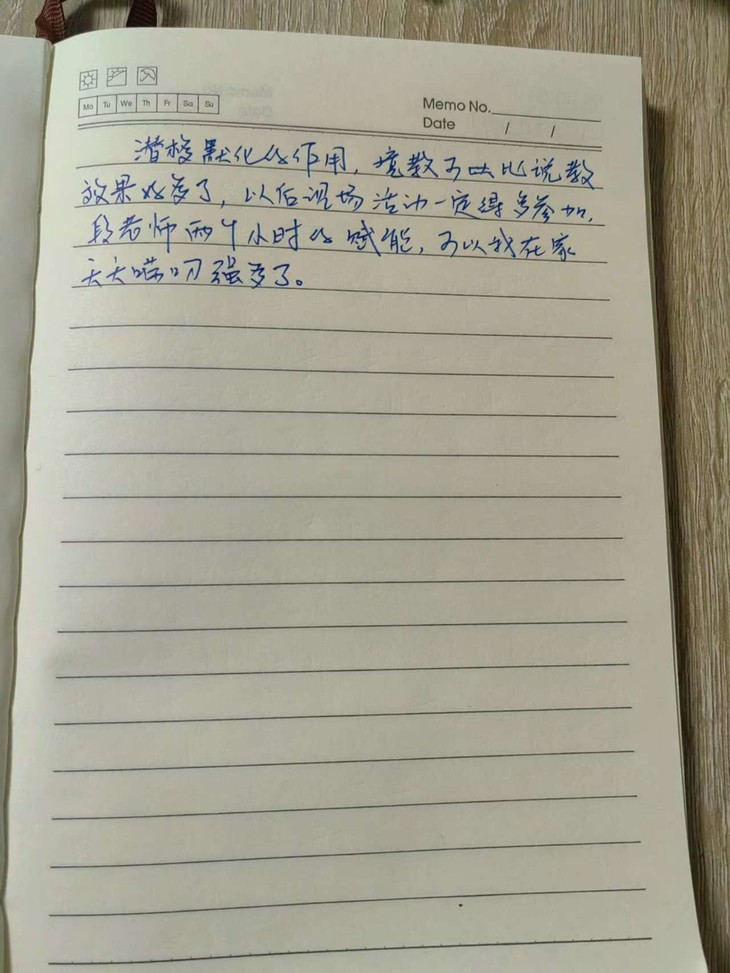 Mo Tu We Th Fr Sa Su
Memo No.
Date / /
潜移默化的作用，境教可以比说教
效果好多了，以后现场活动一定得多参加，
段老师两个小时的赋能，可以我在家
天天唠叨强多了。